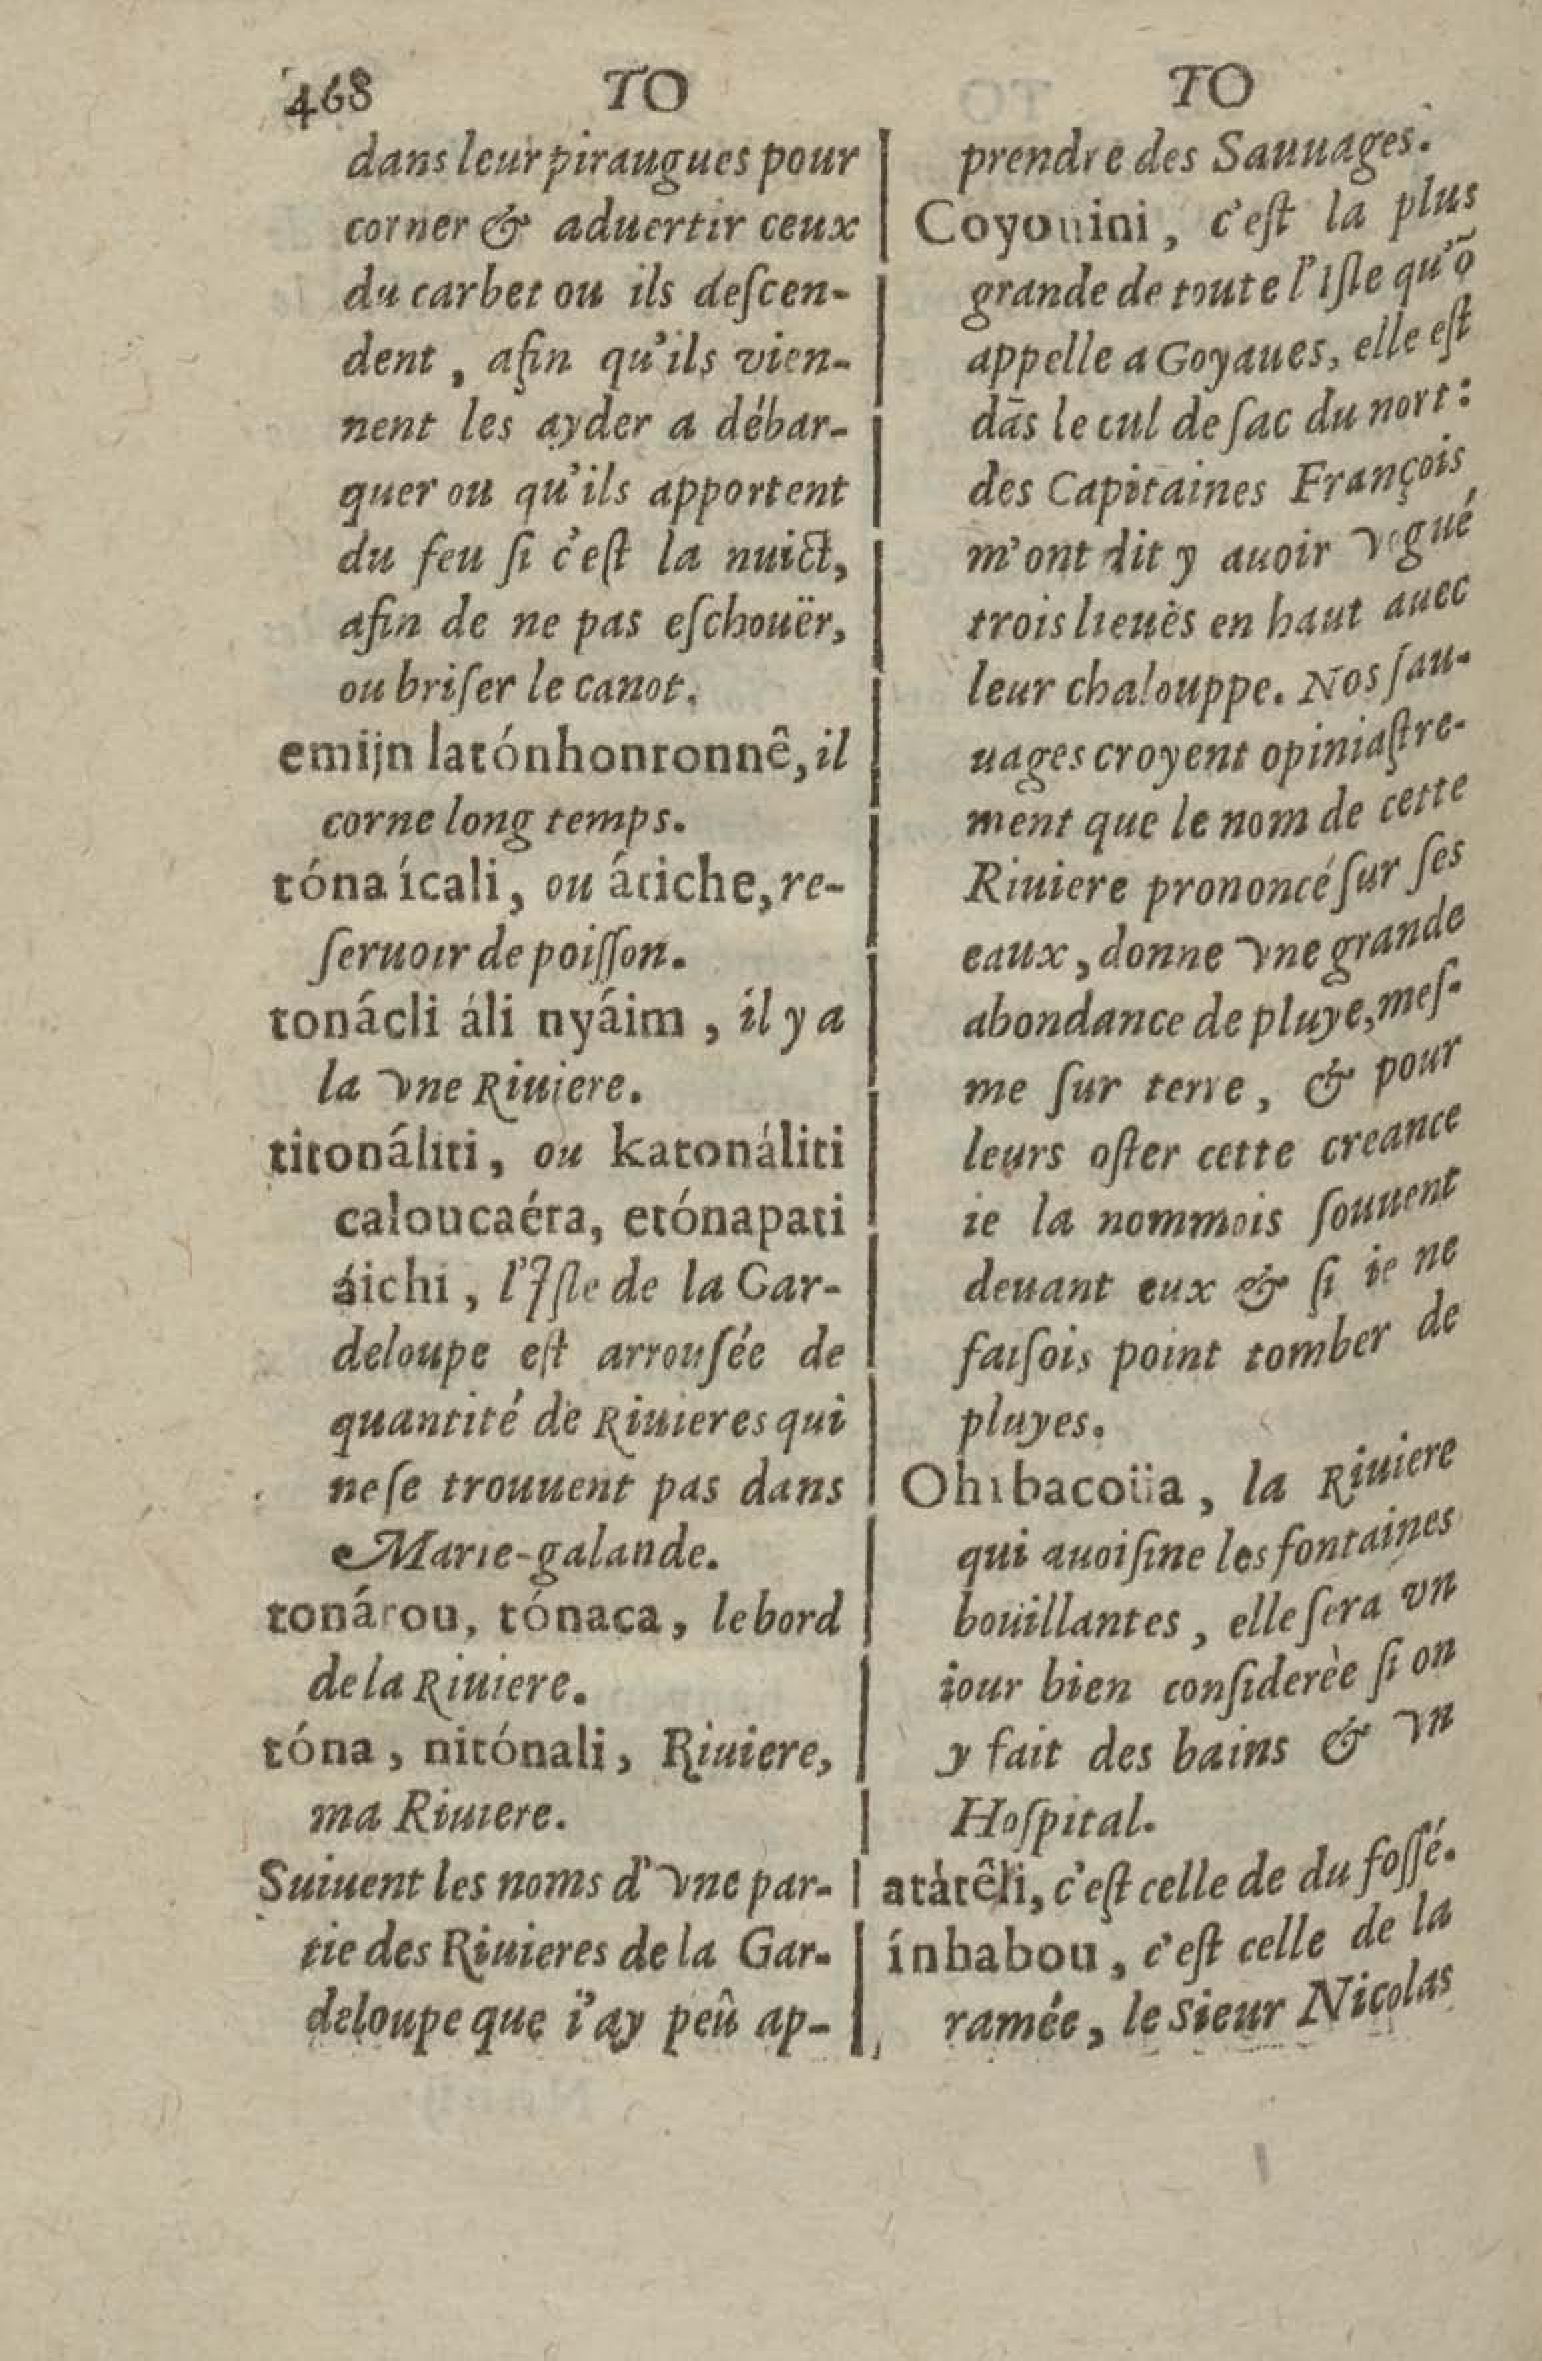 468 TO TO
dans leur piraugues pour
corner & aduertir ceux
du carbet ou ils deſcen-
dent, afin qu'ils vien-
nent les ayder a débar-
quer ou qu'ils apportent
du feu ſi c'eſt la nuict,
afin de ne pas eſchouër,
ou briſer le canot.
emijn latónhonronnê, il
corne long temps.
tóna ícali, ou átiche, re-
ſeruoir de poiſſon.
tonácli áli nyáim, il y a
la vne Riuiere.
titonáliti, ou katonáliti
caloucaéra, etónapati
áichi, l'Iſle de la Gar-
deloupe eſt arrouſée de
quantité de Riuieres qui
ne ſe trouuent pas dans
Marie-galande.
tonárou, tónaca, le bord
de la Riuiere.
tóna, nitónali, Riuiere,
ma Riuiere.
Suiuent les noms d'vne par-
tie des Riuieres de la Gar-
deloupe que i'ay peû ap-
prendre des Sauuages.
Coyouini, c'eſt la plus
grande de toute l'Iſle qu'õ
appelle a Goyaues, elle eſt
dãs le cul de ſac du nort:
des Capitaines François
m'ont dit y auoir vogué
trois lieuès en haut auec
leur chalouppe. Nos ſau-
uages croyent opiniaſtre-
ment que le nom de cette
Riuiere prononcé ſur ſes
eaux, donne vne grande
abondance de pluye, meſ-
me ſur terre, & pour
leurs oſter cette creance
ie la nommois ſouuent
deuant eux & ſi ie ne
faiſois point tomber de
pluyes.
Ohibacoüa, la Riuiere
qui auoiſine les fontaines
boüillantes, elle ſera vn
iour bien conſiderèe ſi on
y fait des bains & vn
Hoſpital.
atátêli, c'eſt celle de du foſſé.
ínhabou, c'eſt celle de la
ramée, le Sieur Nicolas